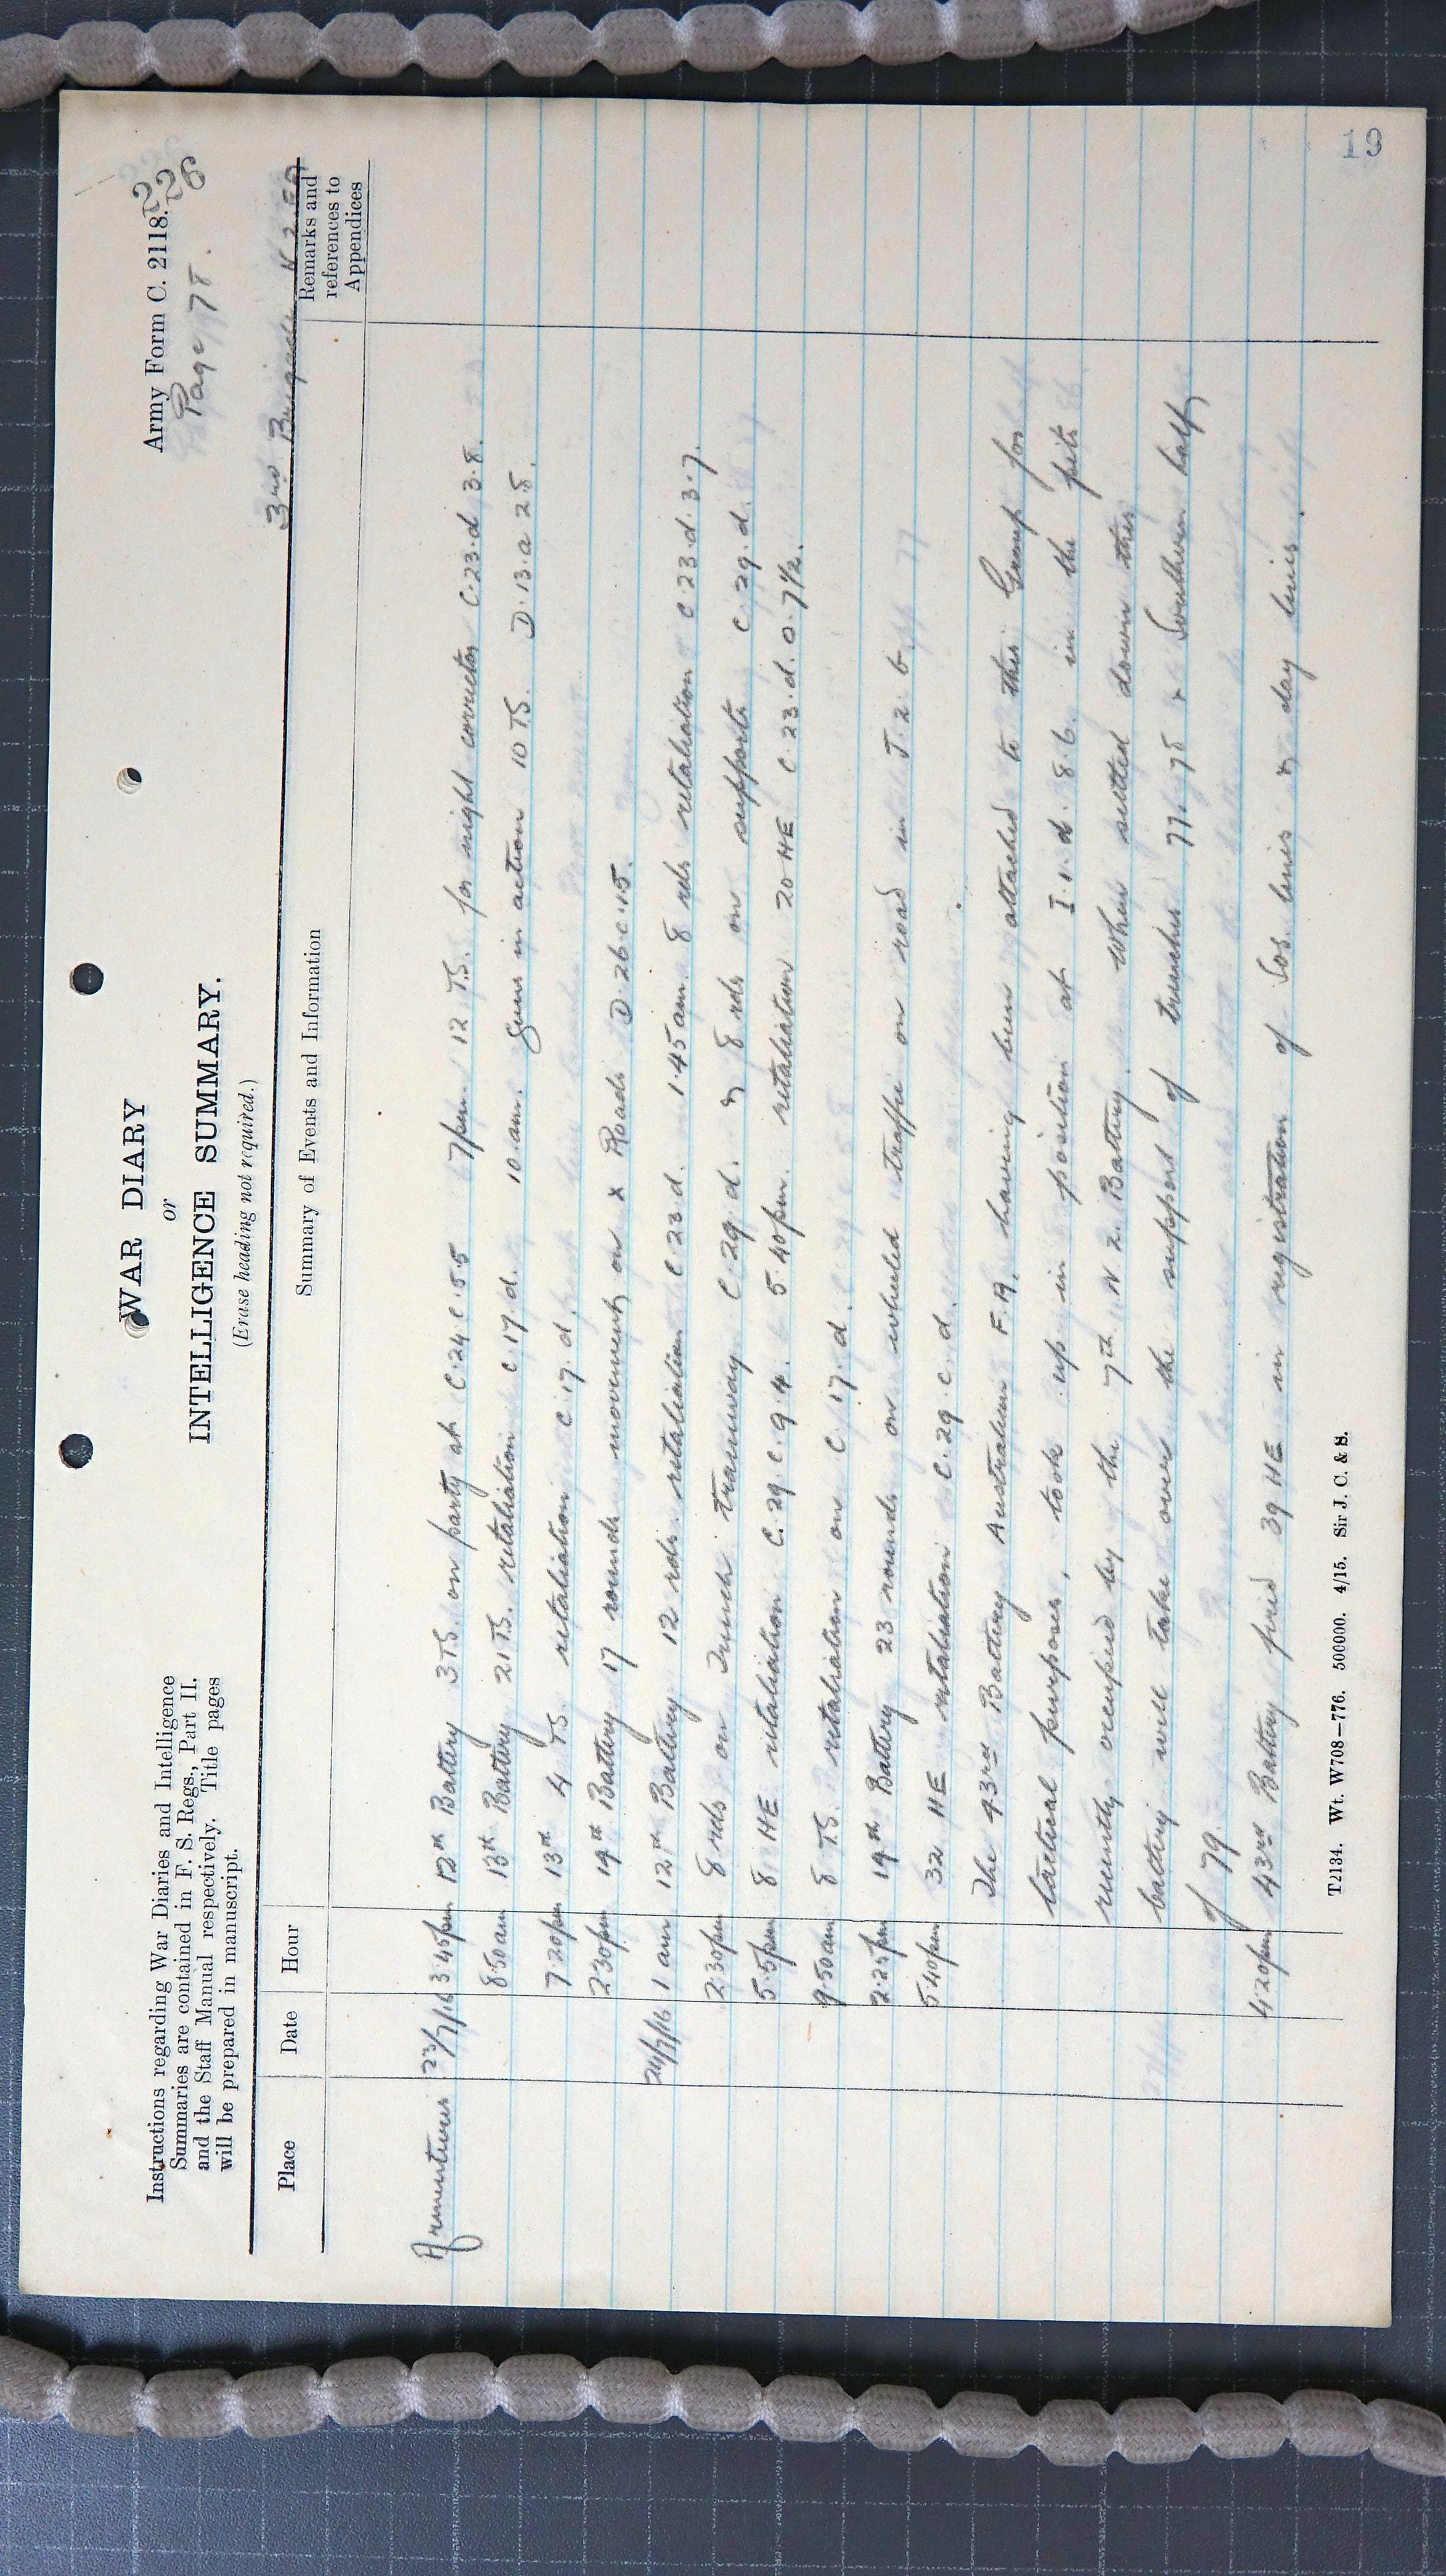 Army Form C. 2118.
226
Page 78.
WAR DIARY
or
INTELLIGENCE SUMMARY.
(Erase heading not required.)
Instructions regarding War Diaries and Intelligence
Summaries are contained in F. S. Regs., Part II.
and the Staff Manual respectively. Title pages
will be prepared in manuscript.
3rd Brigade N Z FA
Place Date Hour Summary of Events and Information Remarks and references to Appendices
Armentieres 23/7/16 3 45pm 12th Battery 3 TS. on party at C.24.c.5.5 7pm 12 TS. for night corrector C.23.d 3.8.
8.50am 13th Battery 21 TS. retaliation C.17.d. 10 am. Guns in action 10 TS. D.13.a 2.8.
7.20pm 13th 4 TS. retaliation C.17.d.
2.30pm 19th Battery 17 rounds movement on X Roads D.26.c.1.5.
24/7/16 1 am 12th Battery 12 rds. retaliation C.23.d. 1.45 am. 8 rds retaliation C.23.d.3.7.
2.30pm 8 rds on Trench tramway C.29.d. & 8 rds on supports C.29.d.
5.5pm 8 HE retaliation C.29.c.9.4. 5.40pm. retaliation 20 HE C.23.d.0.7½.
9.50am 8 TS. retaliation on C.17.d.
2.25pm 19th Battery 23 rounds on wheeled traffic on road in J.2.b.
5.40pm 32 HE retaliation C.29.c.d.
The 43rd Battery Australian F.A. having been attached to this Group for
tactical purposes, took up in position at I.1.d.8.6. in the pits
recently occupied by the 7th N Z. Battery. When settled down this
battery will take over the support of trenches 77. 78 & Southern half
of 79.
4.20pm 43rd Battery fired 39 HE in registration of Sos. lines & day lines.
T2134. Wt. W708—776. 500000. 4/15. Sir J. C. & S.
19